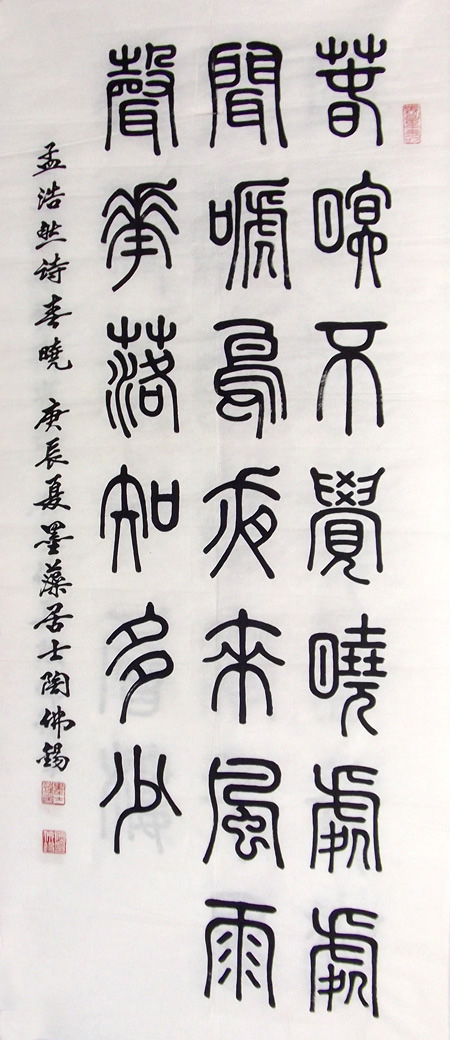 春瞑不覺曉處處
聞嗁鳥夜來風雨
聲華落知多少
孟浩然诗春曉 庚辰夏墨藻居士陶佛錫